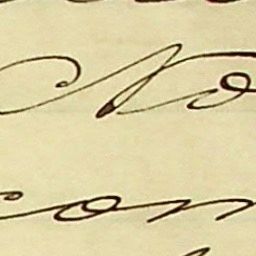 No
con